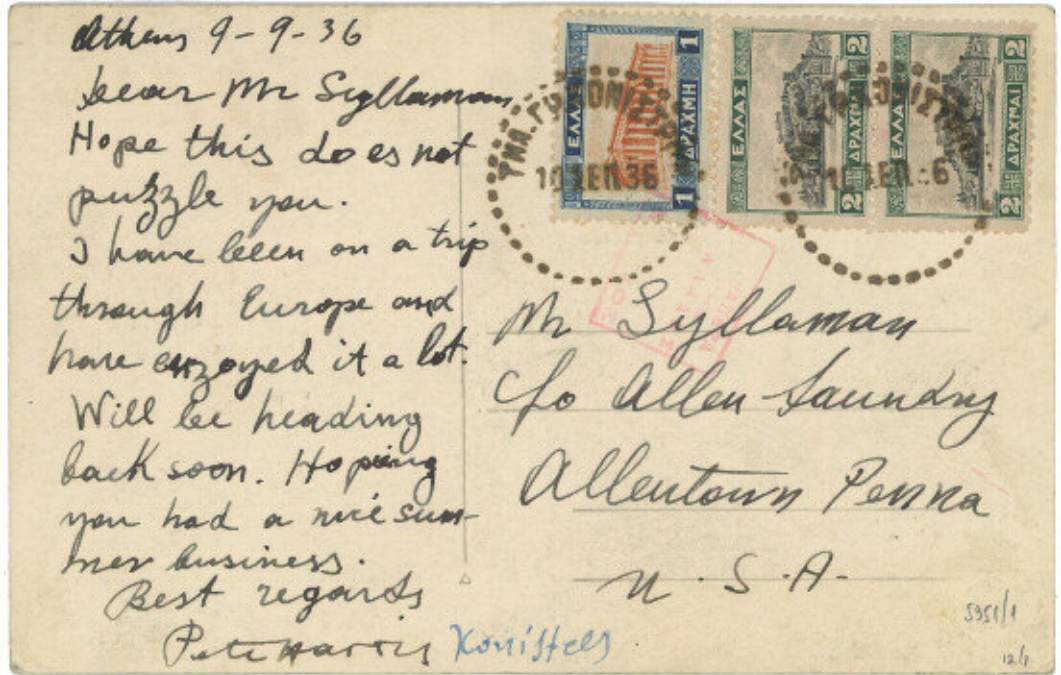 Athens 9-9-36
Dear Mr Syllaman
Hope this does not
puzzle you.
I have been on a trip
through Europe and
have enjoyed it a lot.
Will be heading
back soon. Hoping
you had a nice sum-
mer business.
Best regards
Pete Harris
ΕΛΛΑΣ 1 ΔΡΑΧΜΗ 1
ΕΛΛΑΣ 2 ΔΡΑΧΜΑΙ 2
ΕΛΛΑΣ 2 ΔΡΑΧΜΑΙ 2
10 ΣΕΠ 36
Mr Syllaman
c/o Allen Laundry
Allentown Penna
U.S.A.
5951/1